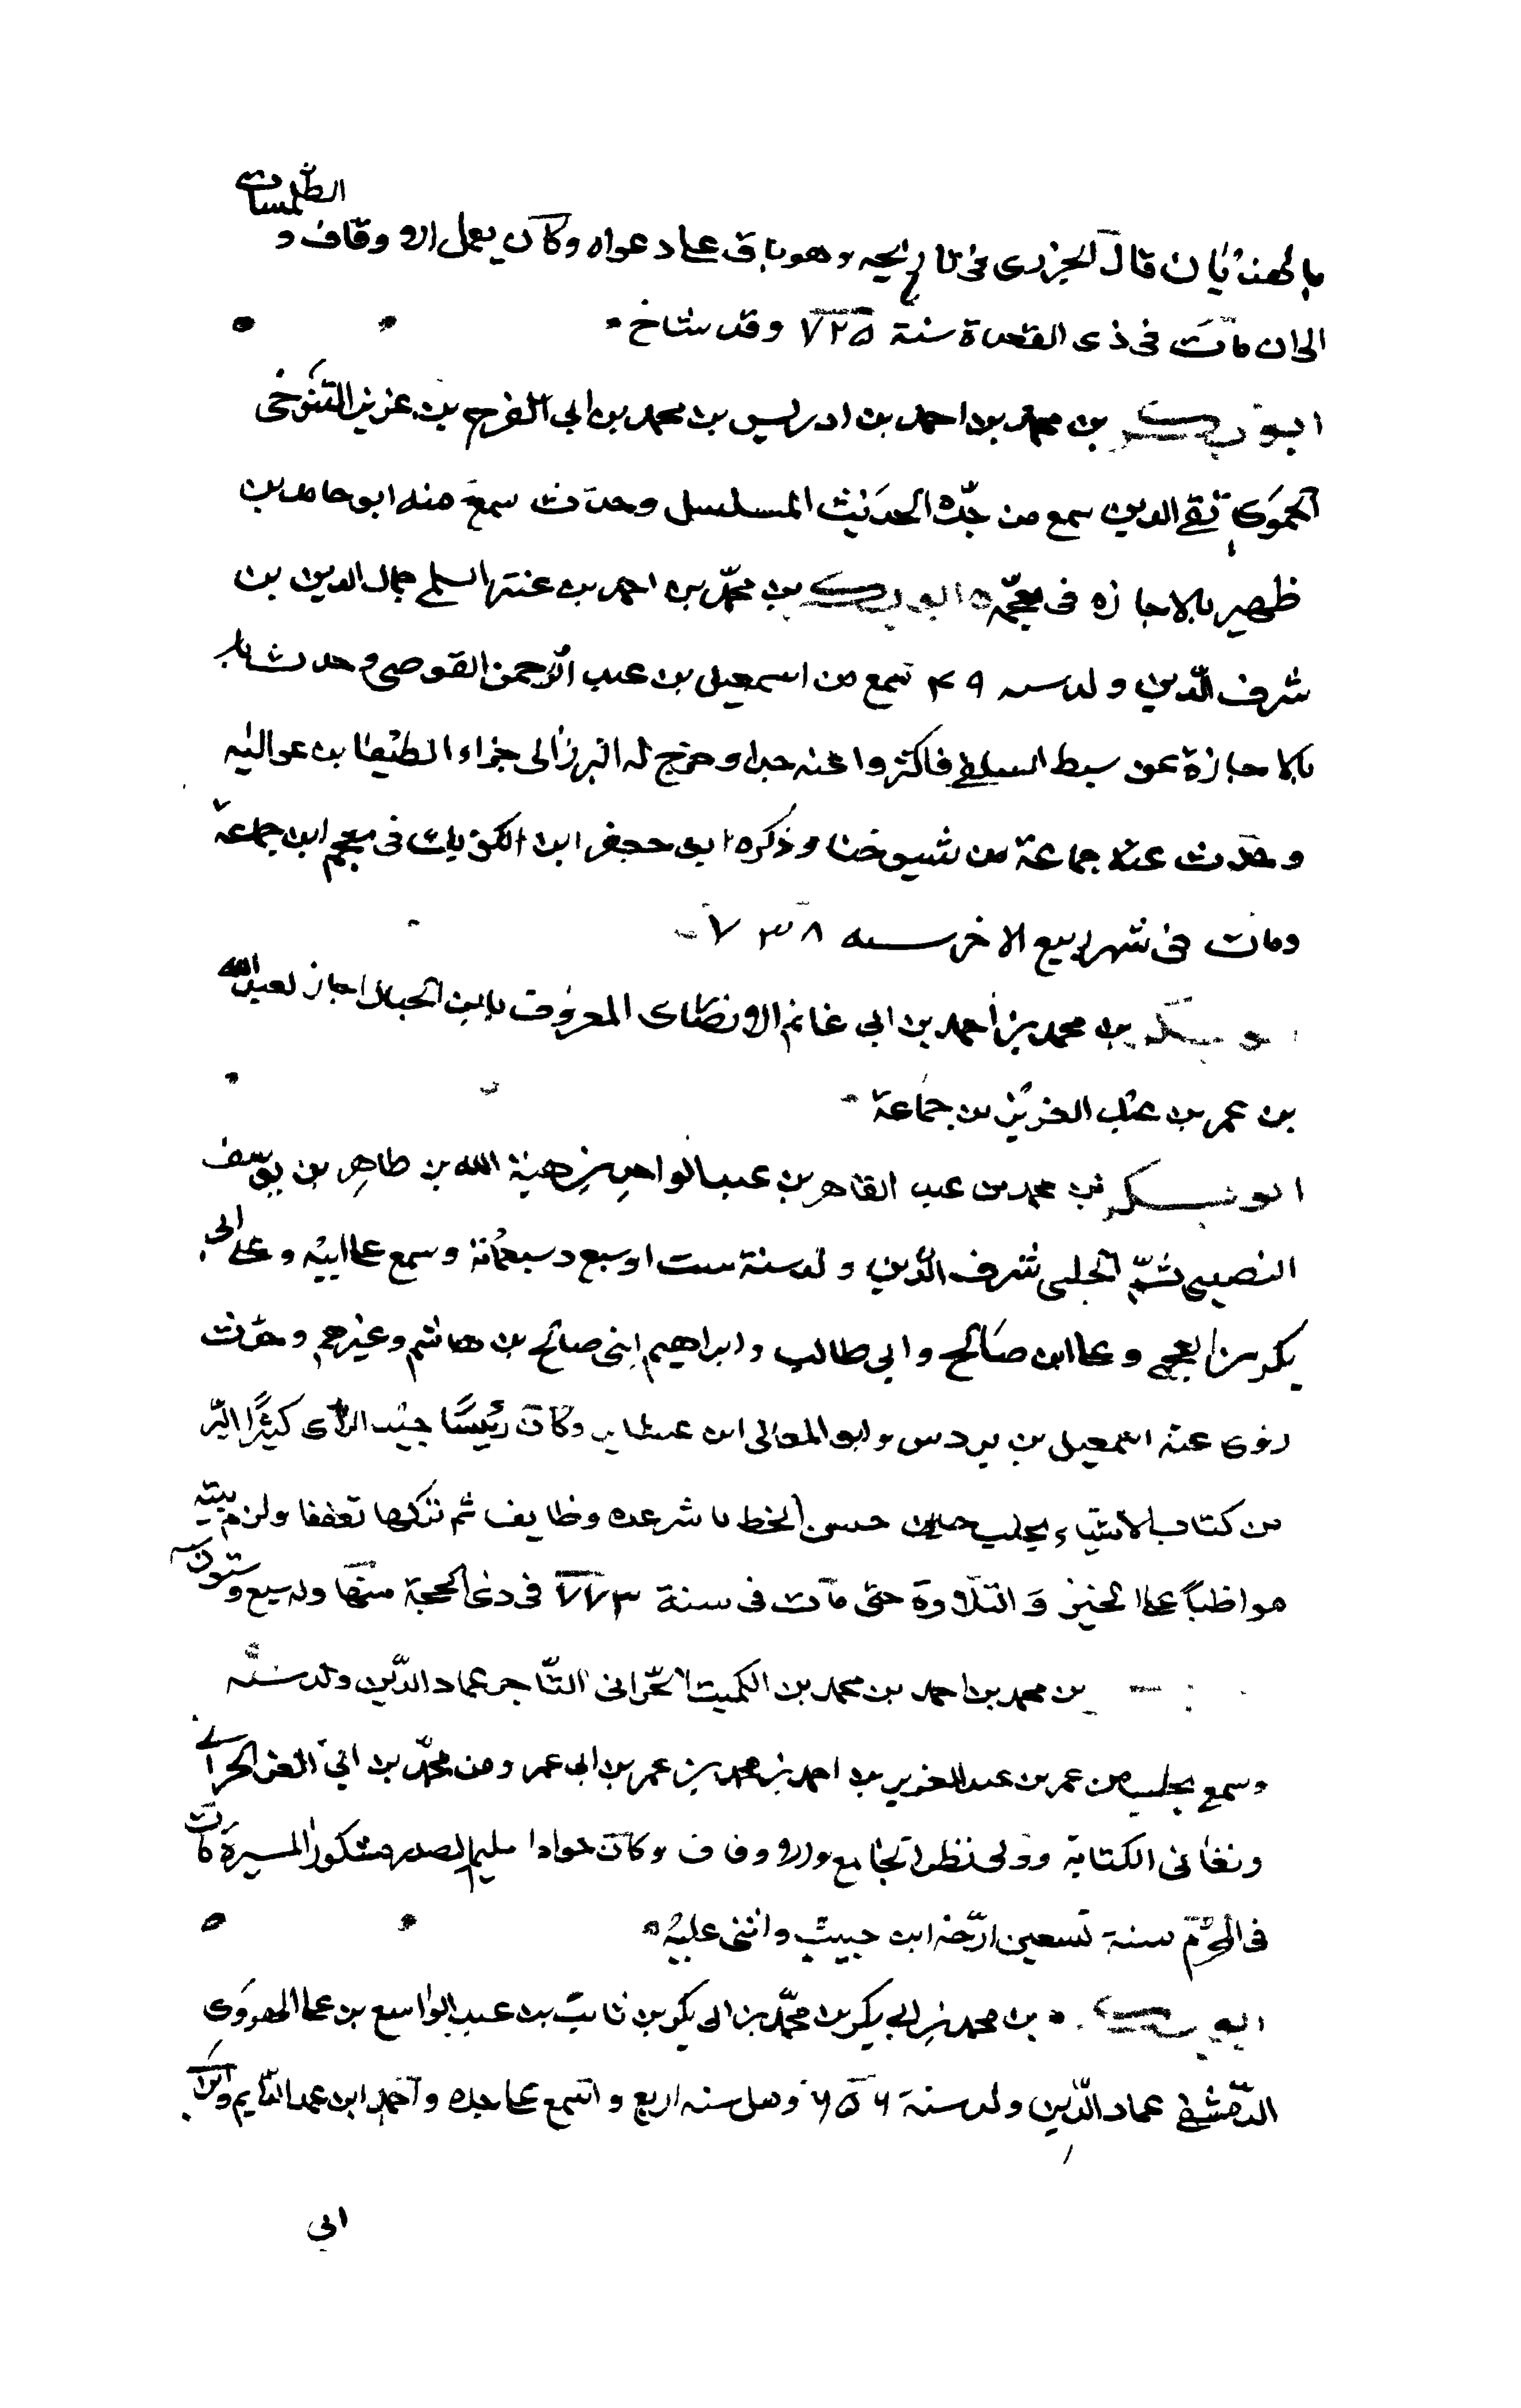 بالهند يان قال الجزرى فى تاريخه وهو باق على دعواه وكان يعمل الاوفاق و الطلمسات
الى ان مات فى ذى القعدة سنة ٧٢٥ وقد شاخ
ابو بكر بن محمد بن احمد بن ادريس بن محمد بن ابى الفرج بن عزيز التنوخى
الحموى تقى الدين سمع من جده الحديث المسلسل وحدث سمع منه ابو حامد بن
ظهير بالاجازه فى معجمه ابو بكر بن محمد بن احمد بن عنتر السلمى جمال الدين بن
شرف الدين ولد سنه ٤٩ سمع من اسمعيل بن عبد الرحمن القوصى وحدث
بالاجازة عن سبط السلفى فاكثروا عنه جدا وخرج له البرزالى جزاء لطيفا بن عواليه
وحدث عنه جماعة من شيوخنا وذكره ابو جعفر ابن الكويك فى معجم ابن جماعة
ومات فى شهر ربيع الاخر سنه ٧٣٨
بن محمد بن احمد بن ابى غانم الانصارى المعروف بابن الحبال اجاز لعبد الله
بن عمر بن عبد العزيز بن جماعة
ابو بكر بن محمد بن عبد القاهر بن عبد الواحد بن هبة الله بن طاهر بن يوسف
النصيبى ثم الحلبى شرف الدين ولد سنة ست او سبع وسبعمائة وسمع على ابيه وعلى ابى
بكر بن العجمى وعلى ابن صالح وابى طالب وابراهيم ابنى صالح بن هاشم وغيرهم وحدث
روى عنه اسمعيل بن بردس وابو المعالى ابن عشاير وكان رئيسا جيد الراى كثيرا البر
من كتاب الانشاء بحلب حسن الخط باشر عده وظايف ثم تركها تعففا ولزم بيته
مواظبا على الخير والتلاوة حتى مات فى سنة ٧٧٣ فى ذى الحجة منها وله سبع وستون
بن محمد بن احمد بن محمد بن الكميت الحرانى التاجر عماد الدين ولد سنة
وسمع بحلب من عمر بن عبد العزيز بن احمد بن محمد بن عمر بن ابى عمر ومن محمد بن ابى العز الحرانى
وتعانى الكتابة وولى نظر الجامع والاوقاف وكان جوادا سليم الصدر مشكور السيرة مات
فى المحرم سنة تسعين ارخه ابن حبيب واثنى عليه
ابو بكر بن محمد بن ابى بكر بن محمد بن ابى بكر بن ثابت بن عبد الواسع بن على الهروى
الدمشقى عماد الدين ولد سنة ٦٥٦ وقيل سنه اربع واسمع على جده واحمد ابن عبد الدايم وابن
ابى